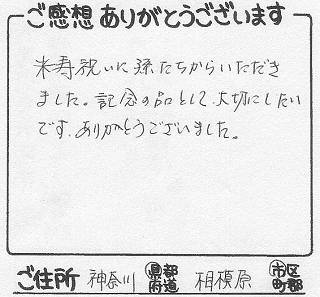 ご感想 ありがとうございます
米寿祝いに孫たちからいただき
ました。記念の品として大切にしたい
です。ありがとうございました。
ご住所 神奈川 県都府道 相模原 市区町郡